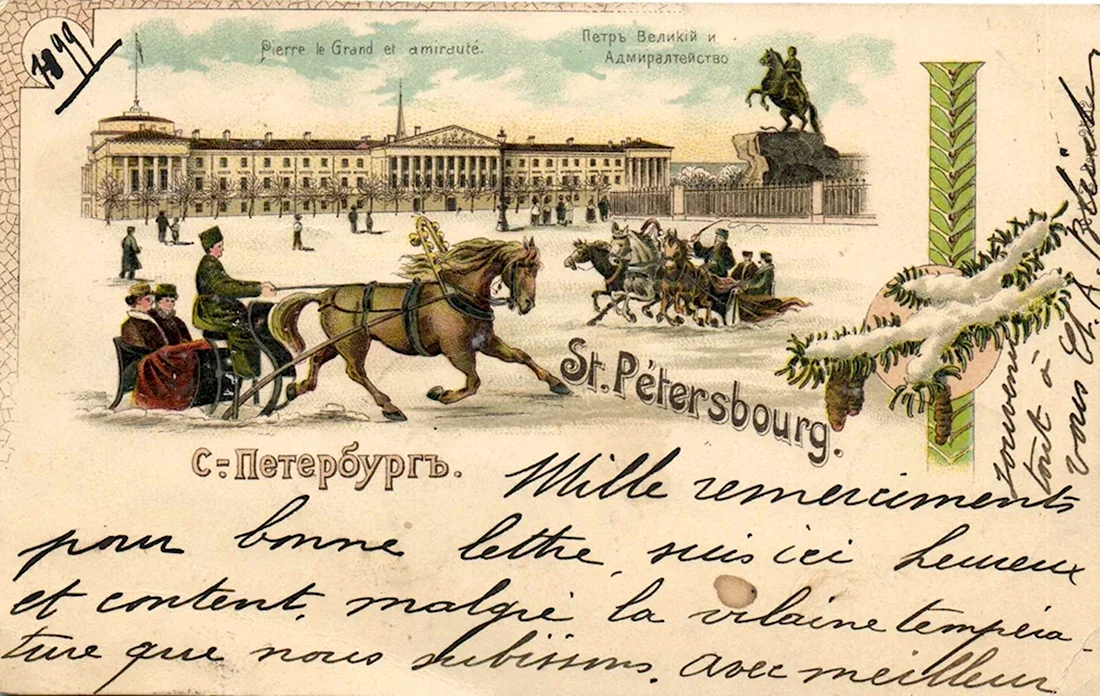 1899
Pierre le Grand et amirauté.
Петръ Великій и
Адмиралтейство
St. Pétersbourg.
С=Петербургъ.
Mille remerciments
pour bonne lettre, suis ici heureux
et content, malgré la vilaine tempéra
ture que nous subissons. Avec meilleur
souvenir
tout à
vous